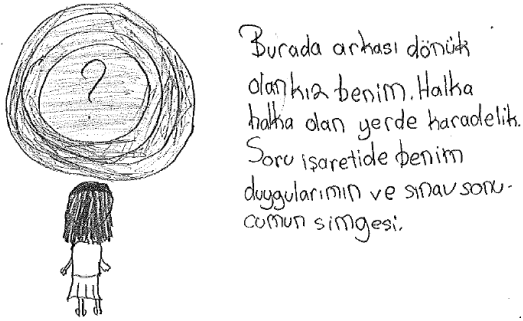 ?
Burada arkası dönük
olan kız benim. Halka
halka olan yerde karadelik.
Soru işaretide benim
duygularımın ve sınav sonu-
cumun simgesi.